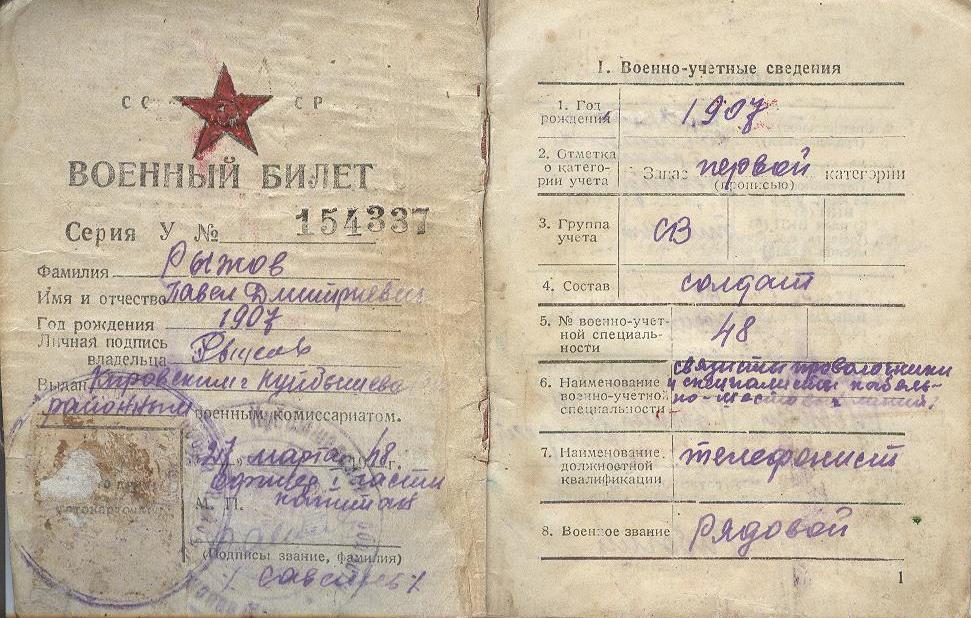 СССР
ВОЕННЫЙ БИЛЕТ
Серия У № 154337
Фамилия Рыжов
Имя и отчество Павел Дмитриевич
Год рождения 1907
Личная подпись
владельца
Выдан Кировским г Куйбышева
районным военным комиссариатом.
27 марта 48 г.
М. П.
(Подпись, звание, фамилия)
I. Военно-учетные сведения
1. Год
рождения 1907
2. Отметка
о катего-
рии учета Запас первой категории
(прописью)
3. Группа
учета СВ
4. Состав солдат
5. № военно-учет-
ной специаль-
ности 48
связисты проволочники
6. Наименование и специалисты кабель-
военно-учетной но-шестовых линий
специальности
7. Наименование
должностной
квалификации телефонист
8. Военное звание рядовой
1